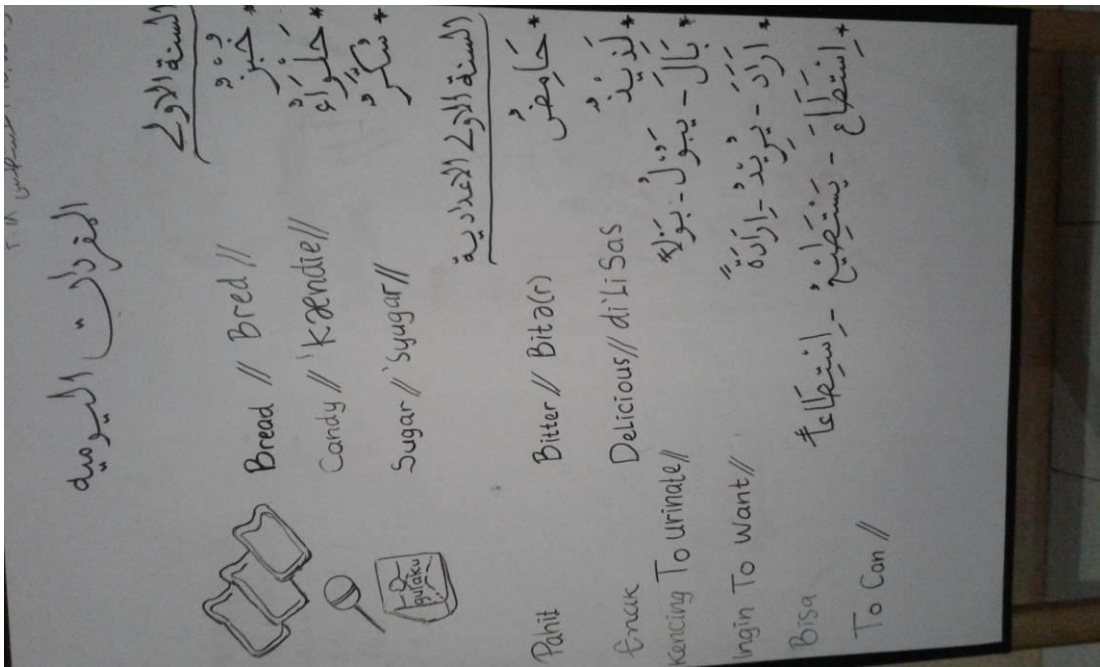 المفردات اليومية
السنة الاولى
Bread // Bred // خُبْزٌ *
Candy // 'Kændie // حَلْوَاءُ *
Sugar // 'Syugar // سُكَّرٌ *
gulaku
السنة الاولى الاعدادية
Pahit Bitter // Bitə(r) حَامِضٌ *
Enak Delicious // di'LiSas لَذِيْذٌ *
Kencing To urinate // بَالَ - يَبُوْلُ - بَوْلاً *
Ingin To Want // اَرَادَ - يُرِيْدُ - إِرَادَةً *
Bisa إِسْتَطَاعَ - يَسْتَطِيْعُ - إِسْتِطَاعَةً *
To Can //